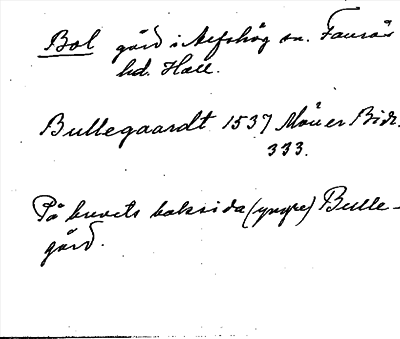 Bol gård i Alfshög sn. Faurås
hd. Hall.
Bullegaardt 1537 Måner Bidr.
333.
På brevets baksida (yngre) Bulle-
gård.